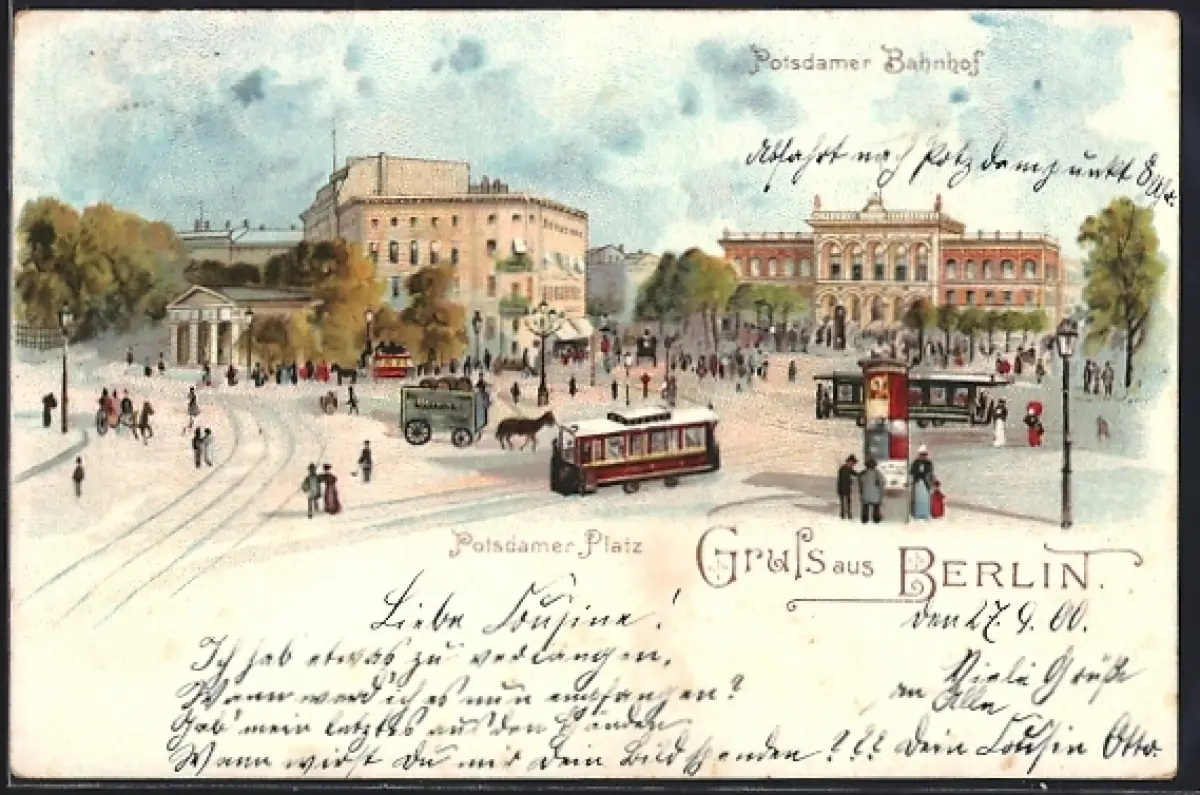 Potsdamer Bahnhof
Abfahrt nach Potzdam punkt 8
Potsdamer Platz
Gruss aus Berlin.
den 27. 9. 00.
Liebe Cousine!
Ich hab etwas zu verlangen,
Wann werd ich es nun empfangen?
Gab' mein letztes aus den Händen
Wann wirst Du mir Dein Bild spenden???
Viele Grüße
an Alle
Dein Cousin Otto.